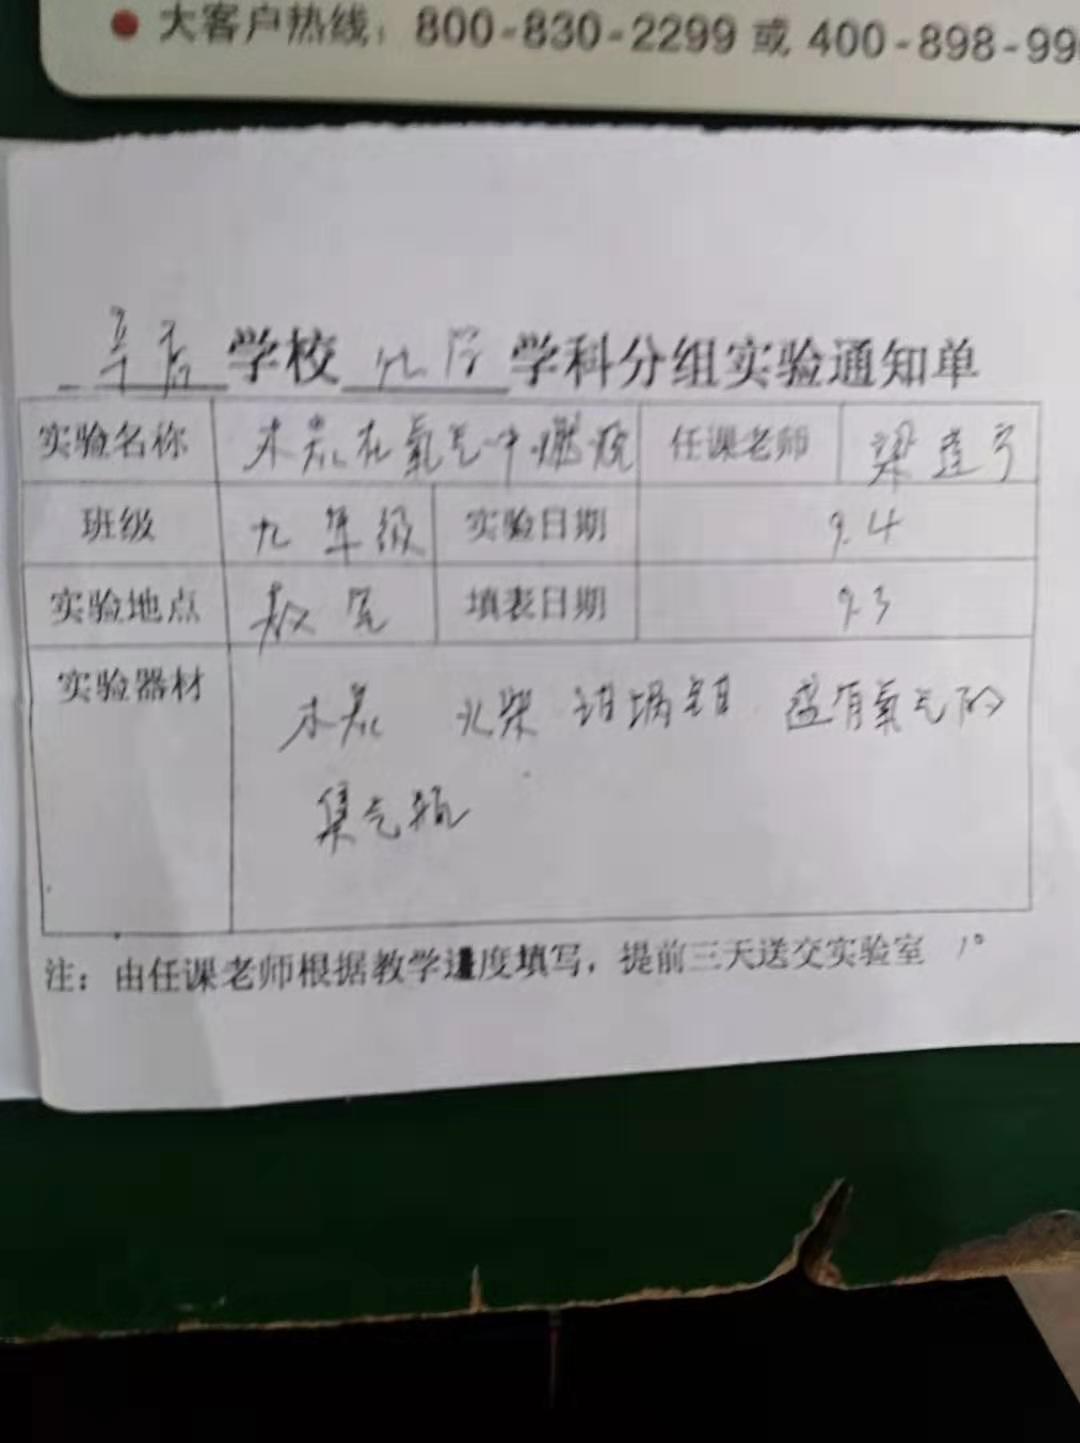 大客户热线：800-830-2299 或 400-898-99
学校 化学 学科分组实验通知单
实验名称 木炭在氧气中燃烧 任课老师 梁
班级 九年级 实验日期 9.4
实验地点 教室 填表日期 9.3
实验器材 木炭 火柴 坩埚钳 盛有氧气的
集气瓶
注：由任课老师根据教学进度填写，提前三天送交实验室